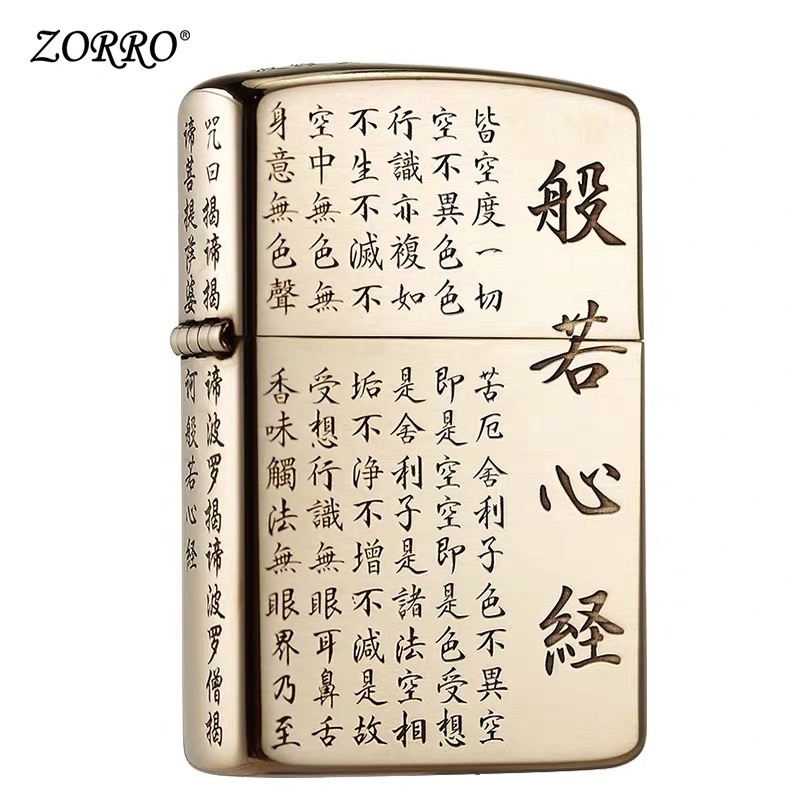 ZORRO®
般若心経
皆空度一切苦厄舍利子色不異空
空不異色色即是空空即是色受想
行識亦複如是舍利子是諸法空相
不生不滅不垢不浄不增不減是故
空中無色無受想行識無眼耳鼻舌
身意無色聲香味觸法無眼界乃至
咒曰揭谛揭谛波罗揭谛波罗僧揭
谛菩提萨婆诃般若心経